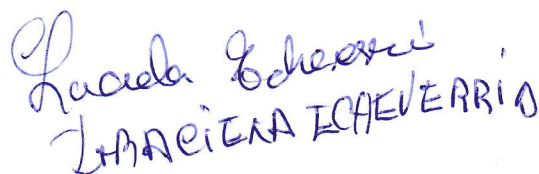 Graciela Echeverri
GRACIELA ECHEVERRIA